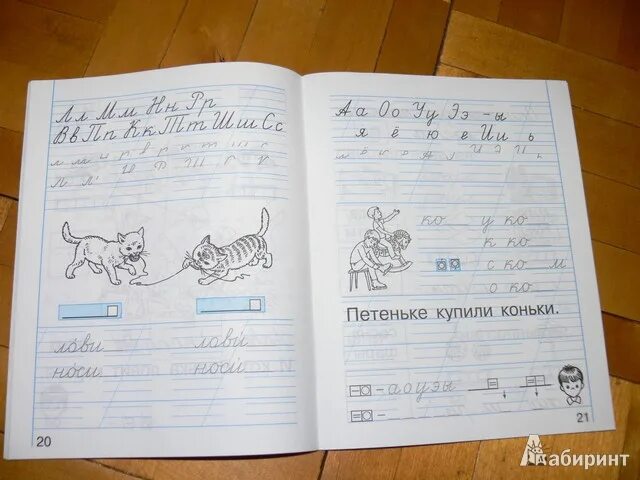 Лл Мм Нн Рр
Вв Пп Кк Тт Шш Сс
лови лови
носи носи
20
Аа Оо Уу Ээ -ы
я ё ю е Ии ь
ко у ко
к ко
с ко м
о ко
Петеньке купили коньки.
- а о у э ы
21
Лабиринт